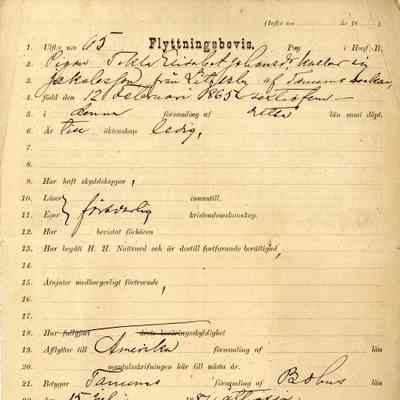 (Infördt sub № År 18 )
Flyttningsbevis.
1. Utfl:s sub 65 Pag i Husf.-B.
2. Pigan Tekla Elisabet Johansdr kallar sig
3. Jakobsson från Litzerby af Tanums socken,
4. född den 12 Februari 1865
5. i denna församling af detta län samt döpt.
6. Är till äktenskap ledig,
7.
8.
9. Har haft skyddskoppor,
10. Läser innantill.
11. Eger försvarlig kristendomskunskap.
12. Har bevistat förhören
13. Har begått H. H. Nattvard och är dertill fortfarande berättigad,
14.
15. Åtnjuter medborgerligt förtroende,
16.
17.
18. Har fullgjort värnskyldighet
19. Afflyttar till Amerika församling af län
20. mantalsskrifningen här till nästa år.
21. Betygar Tanums församling af Bohus län
22. den 15